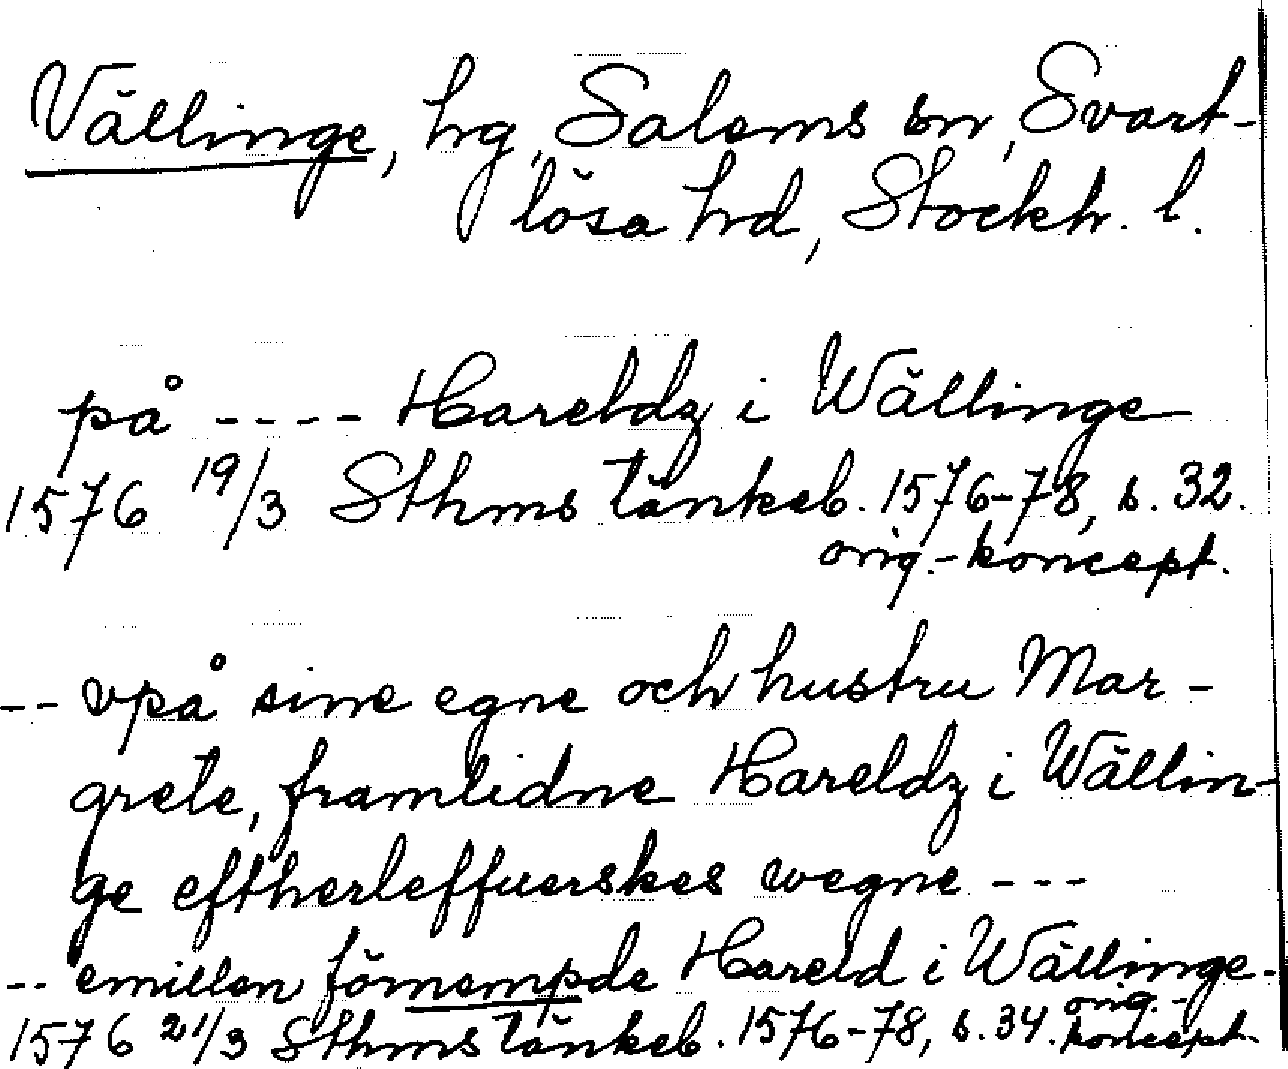 Vällinge, hg, Salems sn, Svart-
lösa hrd, Stockh. l.
på ---- Hareldz i Wällinge
1576 19/3 Sthms tänkeb. 1576-78, s. 32.
orig.-koncept.
-- vpå sine egne och hustru Mar-
grete, framlidne Hareldz i Wällin-
ge eftherleffuerskes wegne ---
-- emillen förnempde Hareld i Wällinge-
1576 21/3 Sthms tänkeb. 1576-78, s. 34. orig.-
koncept.